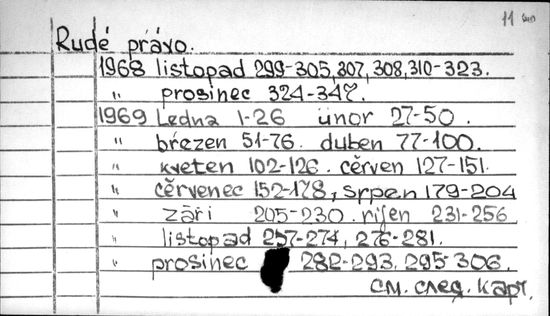 11
Rudé právo.
1968 listopad 299-305, 307, 308, 310-323.
" prosinec 324-347.
1969 Ledna 1-26 únor 27-50.
" březen 51-76. duben 77-100.
" kveten 102-126. cěrven 127-151.
" cěrvenec 152-178, srpen 179-204
" září 205-230. rijen 231-256
" listopad 257-274, 276-281.
" prosinec 282-293, 295-306.
см. след. карт.